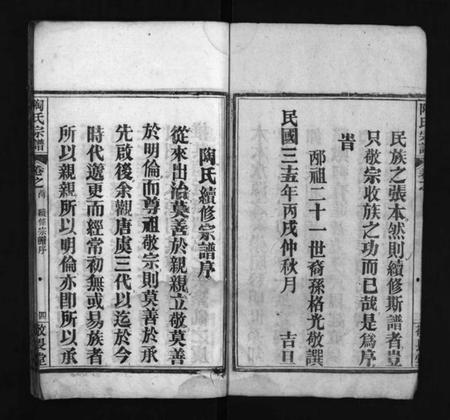 民族之張本然則續修斯譜者豈
只敬宗收族之功而已哉是為序
旹
邴祖二十一世裔孫格光敬譔
民國三十五年丙戌仲秋月 吉日
陶氏續修宗譜序
從來出治莫善於親親立敬莫善
於明倫而尊祖敬宗則莫善於承
先啟後余觀唐虞三代以迄於今
時代遞更而經常初無或易族者
所以親親所以明倫亦即所以承
陶氏宗譜 卷之首 續修宗譜序 四 敦睦堂
陶氏宗譜